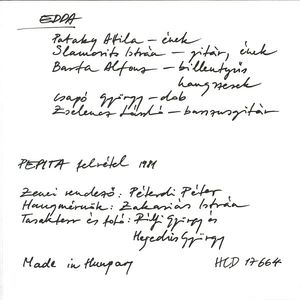 EDDA
Pataky Attila – ének
Slamovits István – gitár, ének
Barta Alfonz – billentyűs
hangszerek
csapó György – dob
Zselencz László – basszusgitár
PEPITA felvétel 1981
Zenei rendező: Péterdi Péter
Hangmérnök: Zakariás István
Tasakterv és fotó: György és
Hegedűs György
Made in Hungary
HCD 17664